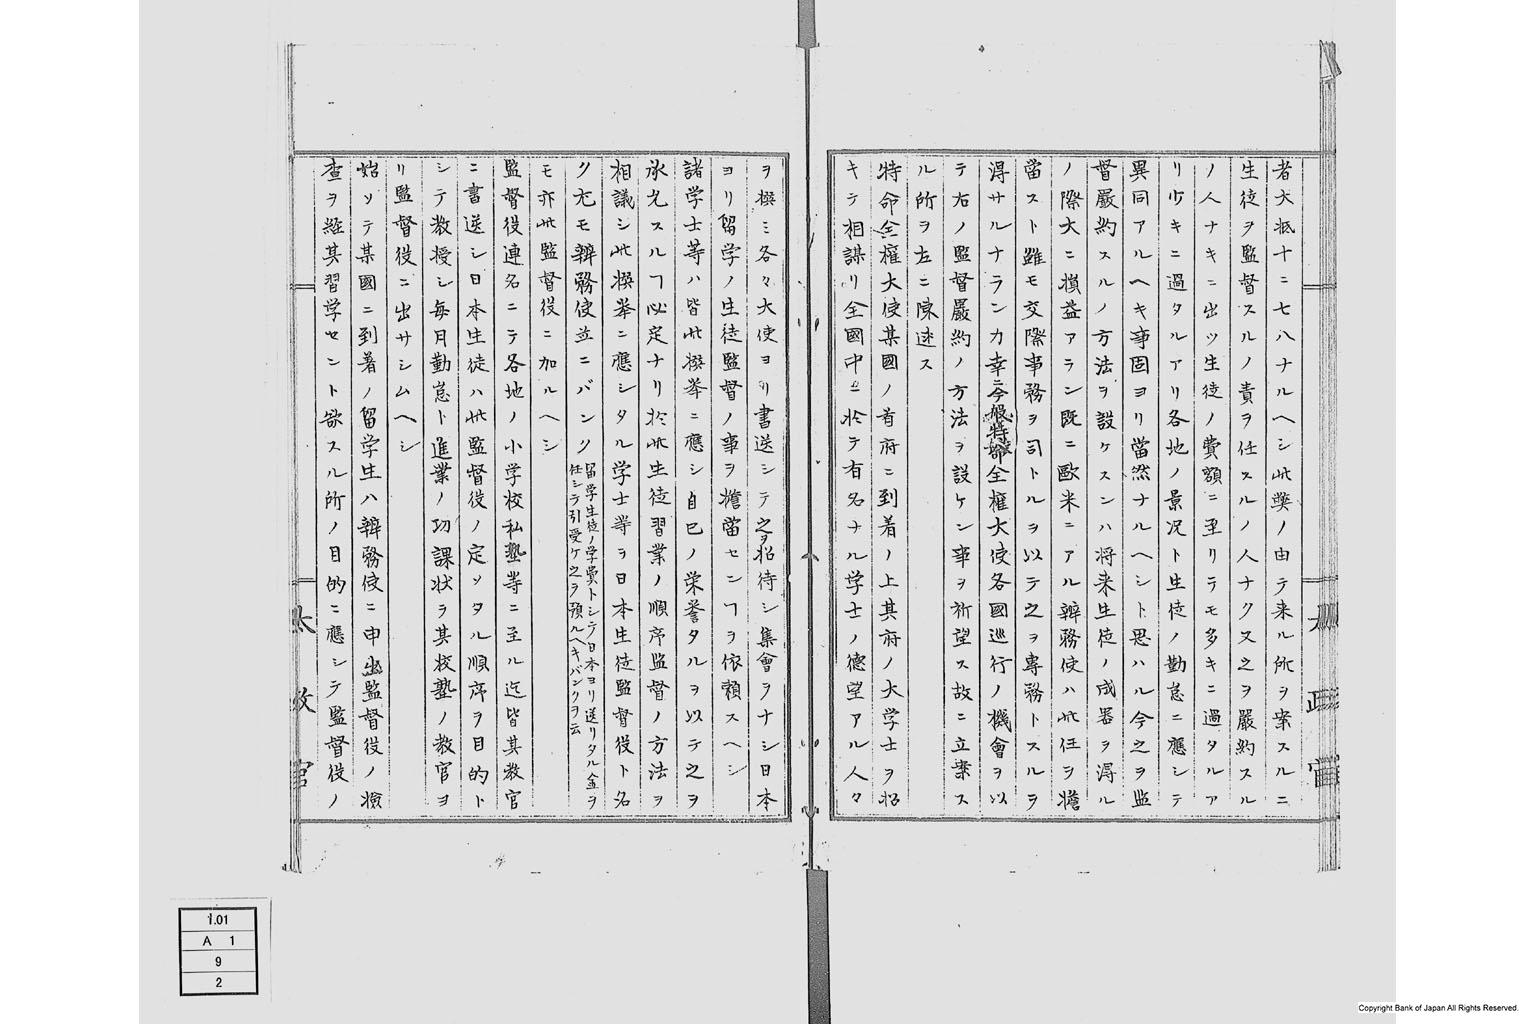 者大抵十ニ七八ナルヘシ此弊ノ由テ来ル所ヲ案スルニ
生徒ヲ監督スルノ責ヲ任スルノ人ナク又之ヲ嚴約スル
ノ人ナキニ出ツ生徒ノ費額ニ至リテモ多キニ過タルア
リ少キニ過タルアリ各地ノ景况ト生徒ノ勤怠ニ應シテ
異同アルヘキ事固ヨリ當然ナルヘシト思ハル今之ヲ監
督嚴約スルノ方法ヲ設ケスンハ将来生徒ノ成器ヲ得ル
ノ際大ニ損益アラン既ニ歐米ニアル辨務使ハ此任ヲ擔
當スト雖モ交際事務ヲ司トルヲ以テ之ヲ專務トスルヲ
得サルナランカ幸ニ今般特命全權大使各國巡行ノ機會ヲ以
テ右ノ監督嚴約ノ方法ヲ設ケン事ヲ祈望ス故ニ立案ス
ル所ヲ左ニ陳述ス
特命全權大使某國ノ首府ニ到着ノ上其府ノ大学士ヲ招
キテ相謀リ全國中ニ於テ有名ナル学士ノ德望アル人々
ヲ撰ミ各々大使ヨリ書送シテ之ヲ招待シ集會ヲナシ日本
ヨリ留学ノ生徒監督ノ事ヲ擔當センヿヲ依頼スヘシ
諸学士等ハ皆此撰挙ニ應シ自己ノ栄誉タルヲ以テ之ヲ
承允スルヿ必定ナリ於此生徒習業ノ順序監督ノ方法ヲ
相議シ此撰挙ニ應シタル学士等ヲ日本生徒監督役ト名
ク尤モ辨務使並ニバンク留学生徒ノ学費トシテ日本ヨリ送リタル金ヲ
任シテ引受ケ之ヲ預ルヘキバンクヲ云
モ亦此監督役ニ加ルヘシ
監督役連名ニテ各地ノ小学校私塾等ニ至ル迄皆其教官
ニ書送シ日本生徒ハ此監督役ノ定ツタル順序ヲ目的ト
シテ教授シ毎月勤怠ト進業ノ功課状ヲ其校塾ノ教官ヨ
リ監督役ニ出サシムヘシ
始ツテ某國ニ到著ノ留学生ハ辨務使ニ申出監督役ノ撿
査ヲ經其習学セント欲スル所ノ目的ニ應シテ監督役ノ
太政官
太政官
1.01
A 1
9
2
Copyright Bank of Japan All Rights Reserved.